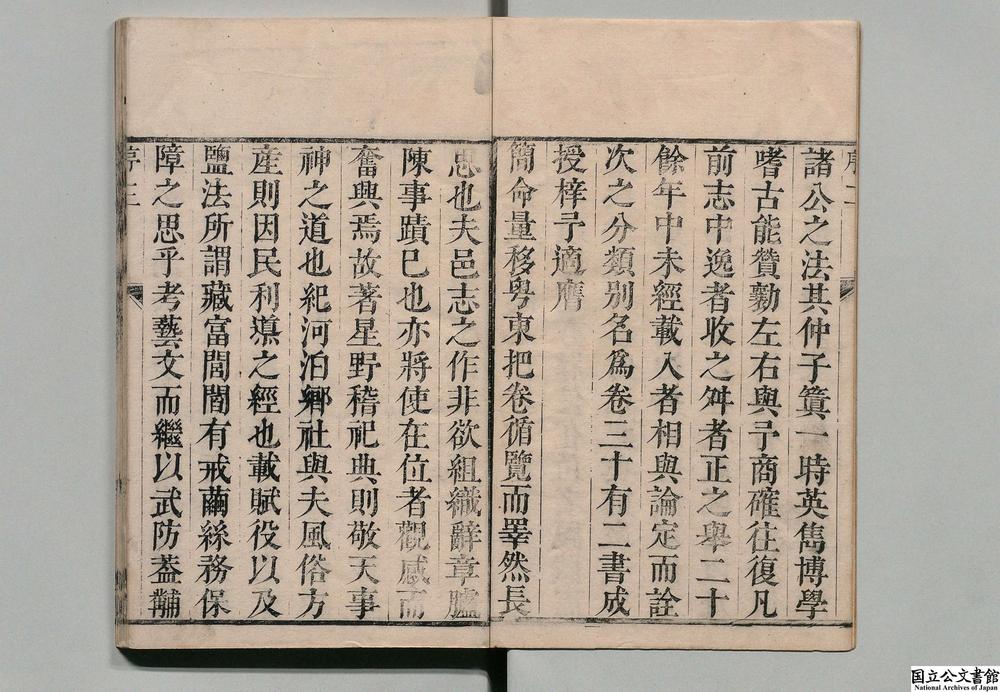 諸公之法其仲子篔一時英雋博學
嗜古能贊勷左右與予商確往復凡
前志中逸者收之舛者正之舉二十
餘年中未經載入者相與論定而詮
次之分類別名爲卷三十有二書成
授梓予適膺
簡命量移粤東把卷循覽而睪然長
思也夫邑志之作非欲組織辭章臚
陳事蹟已也亦將使在位者觀感而
奮興焉故著星野稽祀典則敬天事
神之道也紀河泊鄉社與夫風俗方
產則因民利導之經也載賦役以及
鹽法所謂藏富閭閻有戒繭絲務保
障之思乎考藝文而繼以武防葢黼
序三
国立公文書館
National Archives of Japan